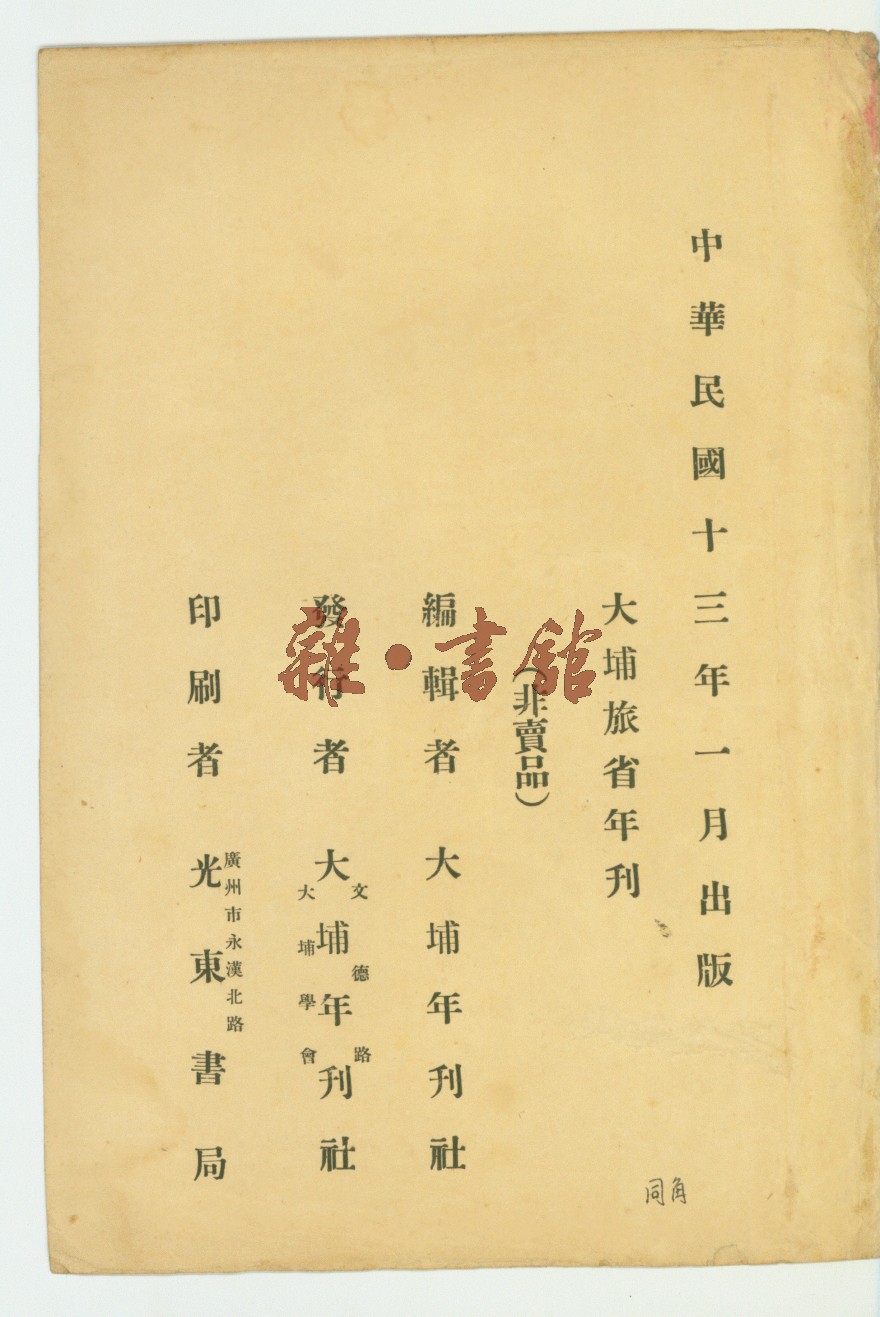 中華民國十三年一月出版
大埔旅省年刊
(非賣品)
編輯者 大埔年刊社
發行者 大埔年刊社
文德路
大埔學會
印刷者 光東書局
廣州市永漢北路
雜·書館
同角